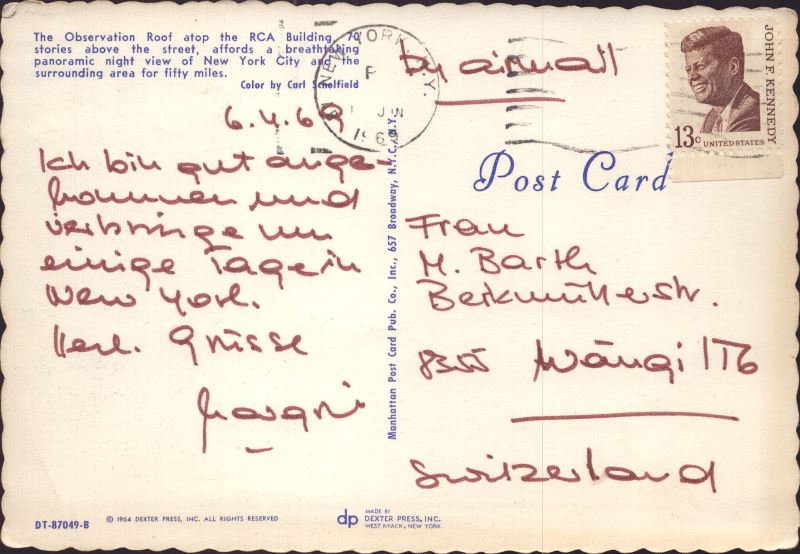 The Observation Roof atop the RCA Building, 70
stories above the street, affords a breathtaking
panoramic night view of New York City and the
surrounding area for fifty miles.
Color by Carl Scholfield
NEW YORK, N.Y.
JUN
196
by airmail
JOHN F. KENNEDY
13c UNITED STATES
6.4.69
Ich bin gut ange-
kommen und
verbringe nun
einige Tage in
New York.
Herl. Grüsse
Margrit
Post Card
Frau
M. Barth
Berkmüllerstr.
Wängi / TG
Switzerland
Manhattan Post Card Pub. Co., Inc., 657 Broadway, N.Y.C., N.Y.
DT-87049-B
© 1964 DEXTER PRESS, INC. ALL RIGHTS RESERVED
dp
MADE BY
DEXTER PRESS, INC.
WEST NYACK, NEW YORK